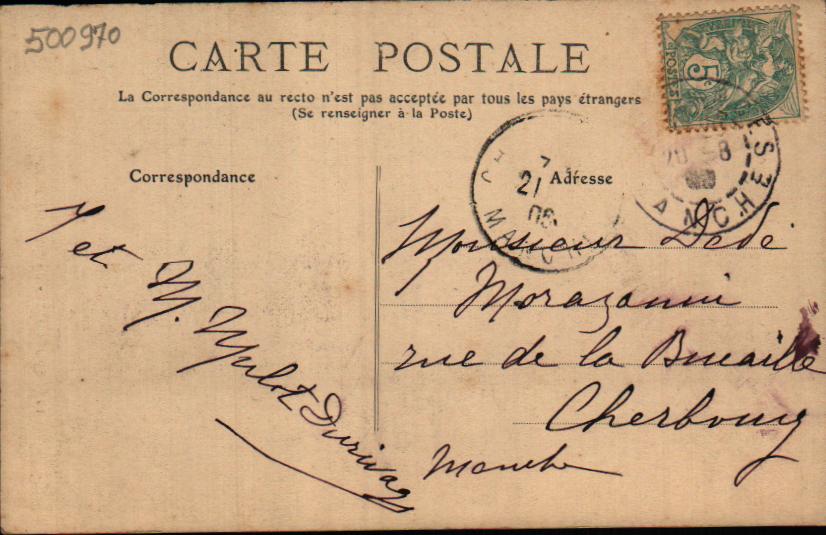 500970
CARTE POSTALE
La Correspondance au recto n'est pas acceptée par tous les pays étrangers
(Se renseigner à la Poste)
Correspondance
Adresse
5c
POSTES
20 -8
MANCHE
21
08
MANCHE
Y et M. Mulot Durivage
Monsieur Dédé
Morazanni
rue de la Bucaille
Cherbourg
Manche